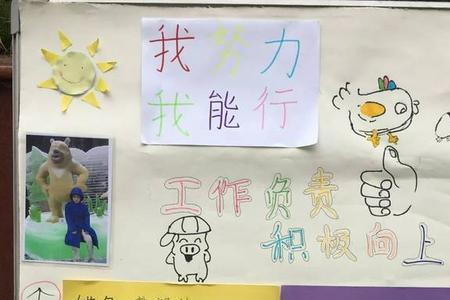 我努力
我能行
工作负责
积极向上